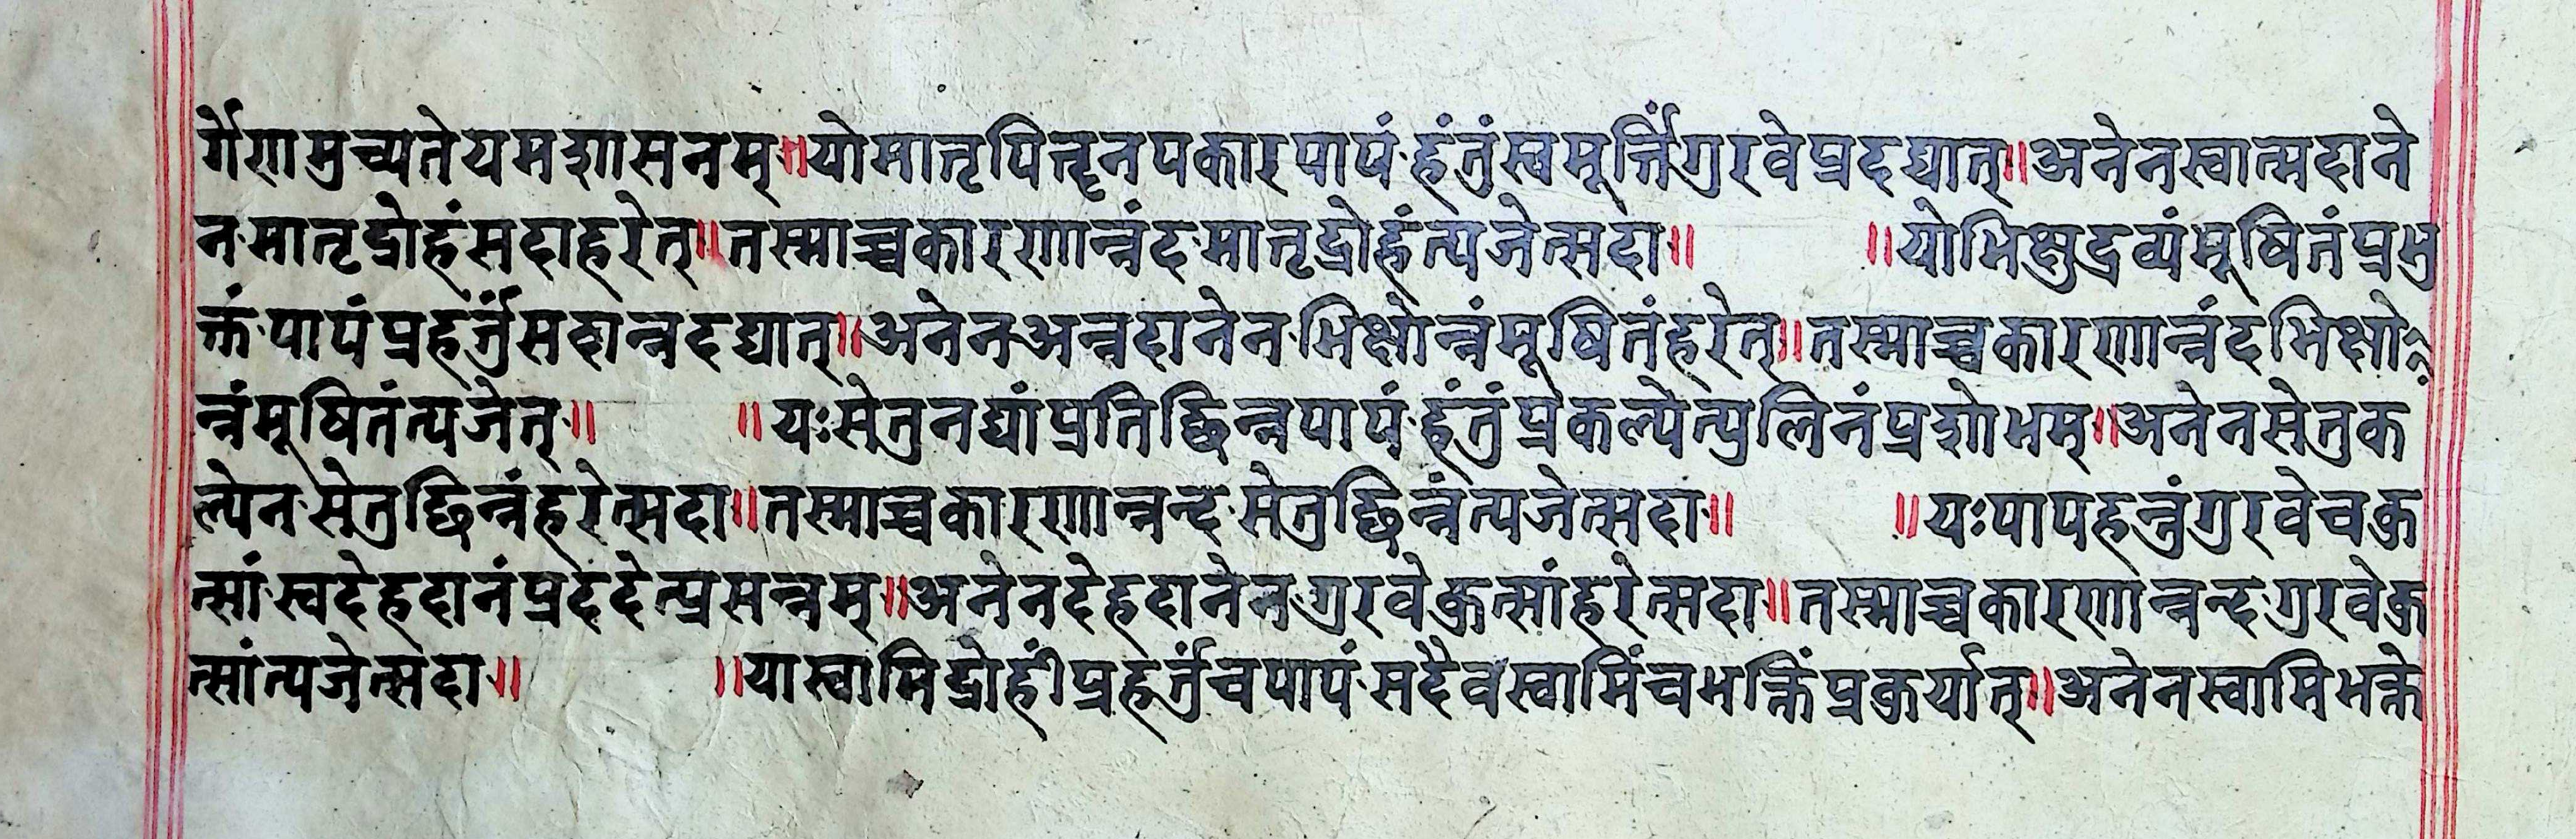 र्गेणामुच्यतेयमशासनम्॥योमातृपितॄनपकारपापं·हंतुंस्वमूर्त्तिंगुरवेप्रदद्यात्॥अनेनस्वात्मदाने
न·मातृद्रोहंसदाहरेत्॥तस्माच्चकारणान्नंद·मातृद्रोहंत्यजेत्सदा॥ ॥योभिक्षुद्रव्यंमूषितंप्रभु
क्तं·पापंप्रहर्त्तुंसदान्नदद्यात्॥अनेन·अन्नदानेन·भिक्षोन्नंमूषितंहरेत्॥तस्माच्चकारणान्नंदभिक्षो
न्नंमूषितंत्यजेत्॥ ॥यःसेतुनद्यांप्रतिछिन्नपापं·हंतुंप्रकल्पेत्पुलिनंप्रशोभम्॥अनेनसेतुक
ल्पेन·सेतुछिन्नंहरेत्सदा॥तस्माच्चकारणान्नन्द·सेतुछिन्नंत्यजेत्सदा॥ ॥यःपापहन्तुंगुरवेचकु
त्सां·स्वदेहदानंप्रददेत्प्रसन्नम्॥अनेनदेहदानेन·गुरवेकुत्सांहरेत्सदा॥तस्माच्चकारणान्नन्द·गुरवेकु
त्सांत्यजेत्सदा॥ ॥यास्वामिद्रोहींप्रहर्त्तुंचपापं·सदैवस्वामिंचभक्तिंप्रकुर्यात्॥अनेनस्वामिभक्ते